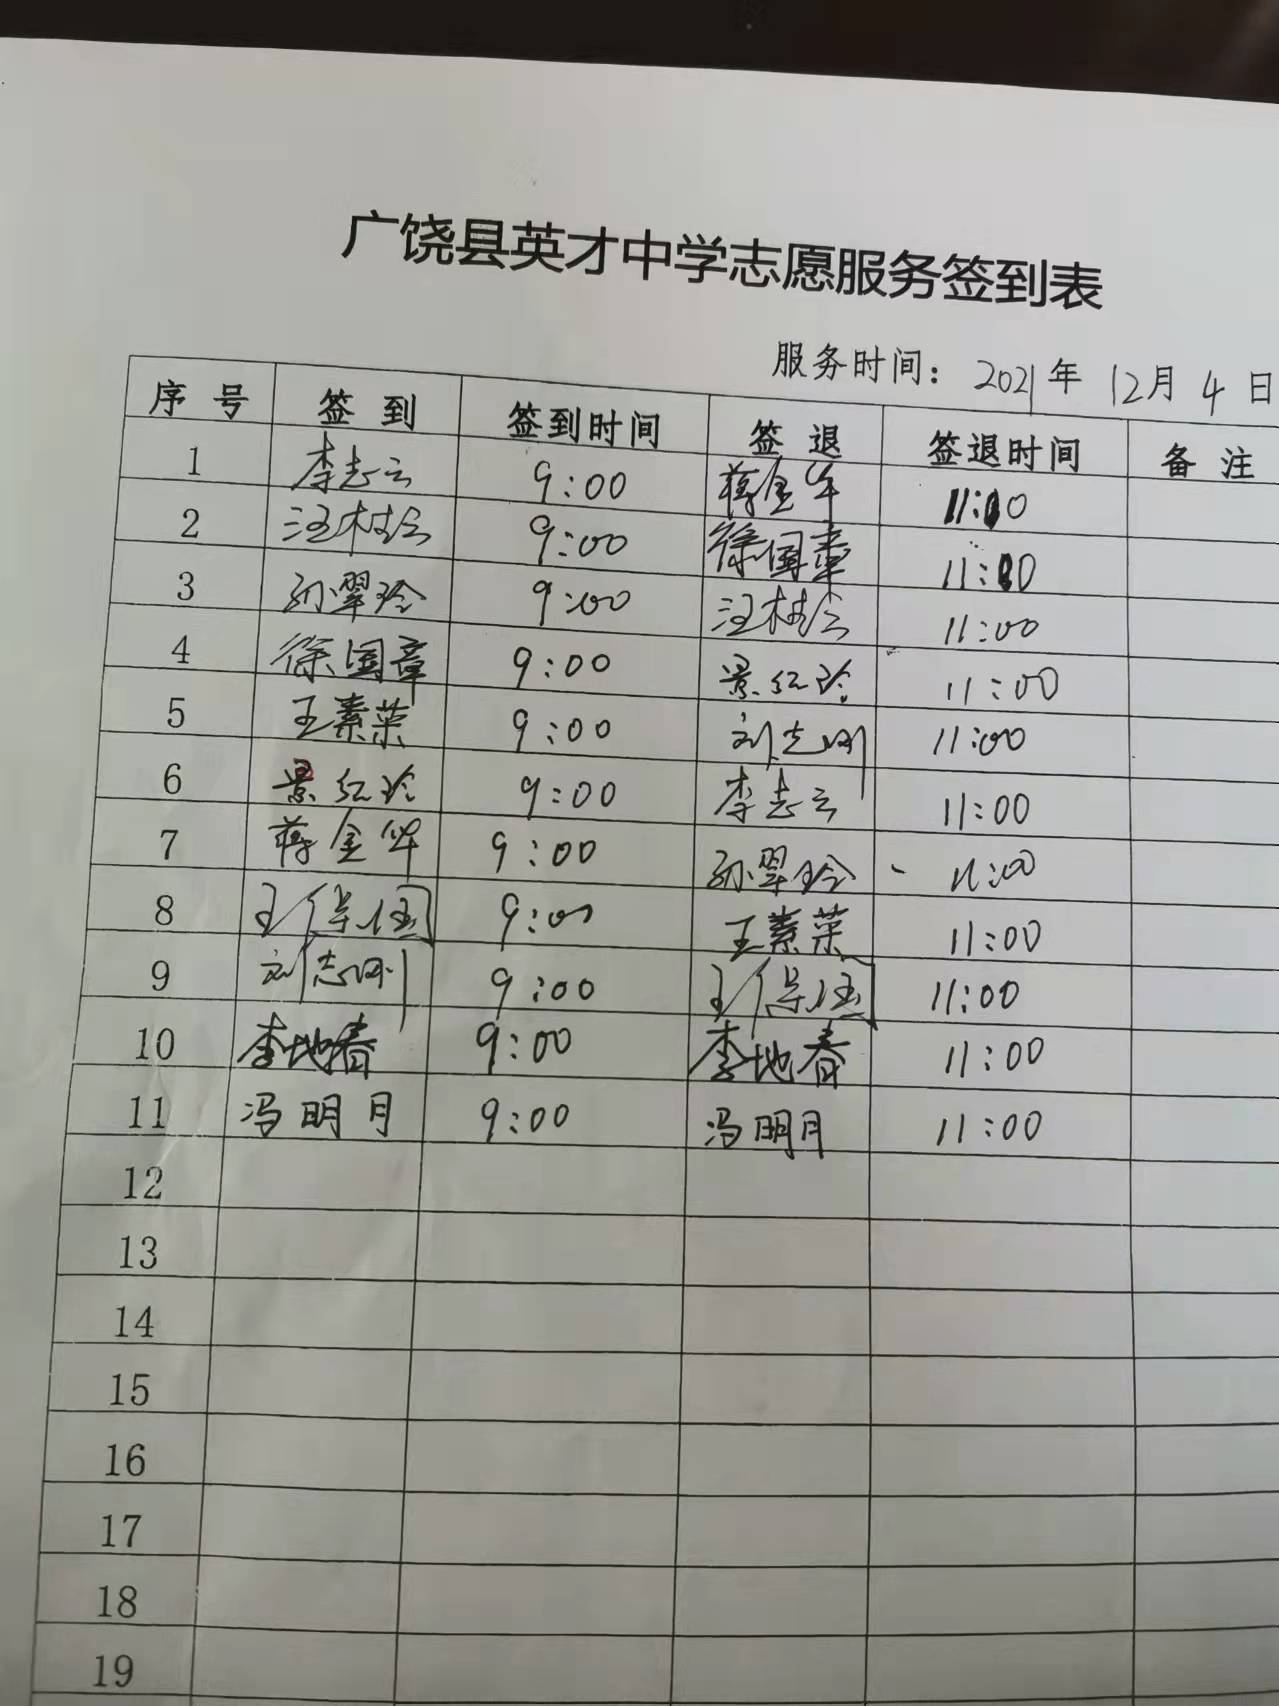 广饶县英才中学志愿服务签到表
服务时间：2021年 12月 4日
序号 签到 签到时间 签退 签退时间 备注
1 李志云 9:00 蒋金华 11:00
2 汪树会 9:00 徐国章 11:00
3 孙翠玲 9:00 汪树会 11:00
4 徐国章 9:00 景红玲 11:00
5 王素荣 9:00 刘志刚 11:00
6 景红玲 9:00 李志云 11:00
7 蒋金华 9:00 孙翠玲 11:00
8 9:00 王素荣 11:00
9 刘志刚 9:00 11:00
10 李地春 9:00 李地春 11:00
11 冯明月 9:00 冯明月 11:00
12
13
14
15
16
17
18
19